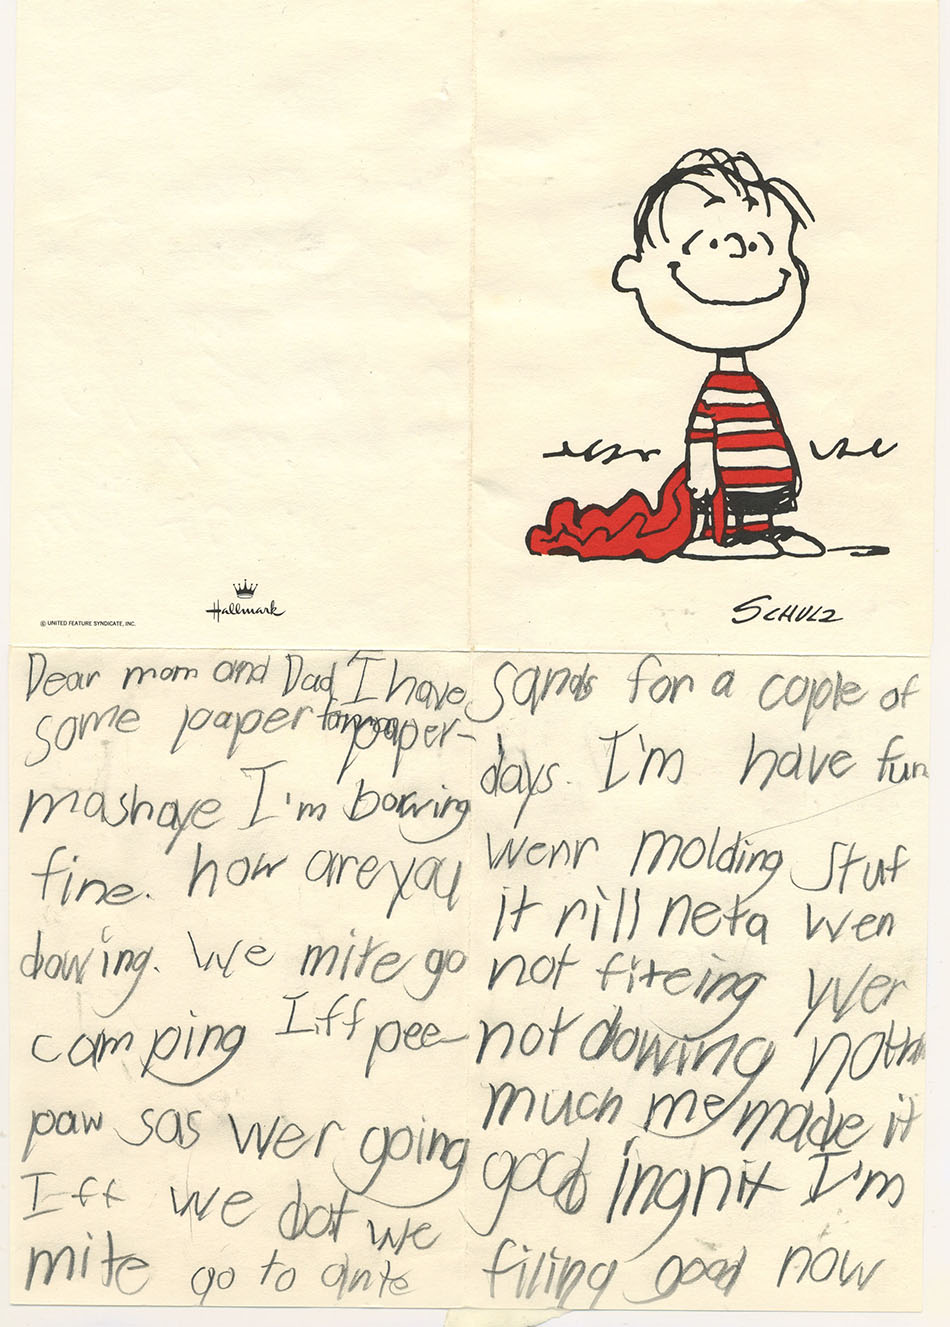 © UNITED FEATURE SYNDICATE, INC.
Hallmark
SCHULZ
Dear mom and Dad I have
some paper paper-
mashaye I'm bowing
fine. how are you
dowing. We mite go
camping Iff pee-
paw sas wer going
Iff we dot we
mite go to ante
sands for a cople of
days. I'm have fun
wenr molding stuf
it rill neta wen
not fiteing wer
not dowing nothin
much me made it
good ingnit I'm
filing good now